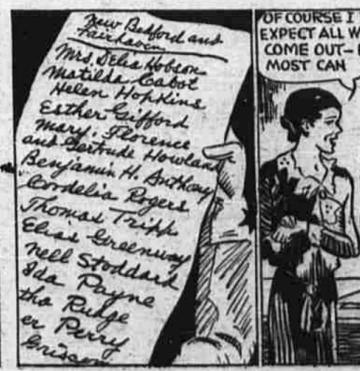 New Bedford and
Fairhaven
Mrs. Delia Hobson
Matilda Cabot
Helen Hopkins
Esther Gifford
Mary, Florence
and Gertrude Howland
Benjamin H. Anthony
Cordelia Rogers
Thomas Tripp
Elias Greenway
Nell Stoddard
Ida Payne
tha Rudge
er Perry
Griscom
OF COURSE I
EXPECT ALL W
COME OUT-
MOST CAN